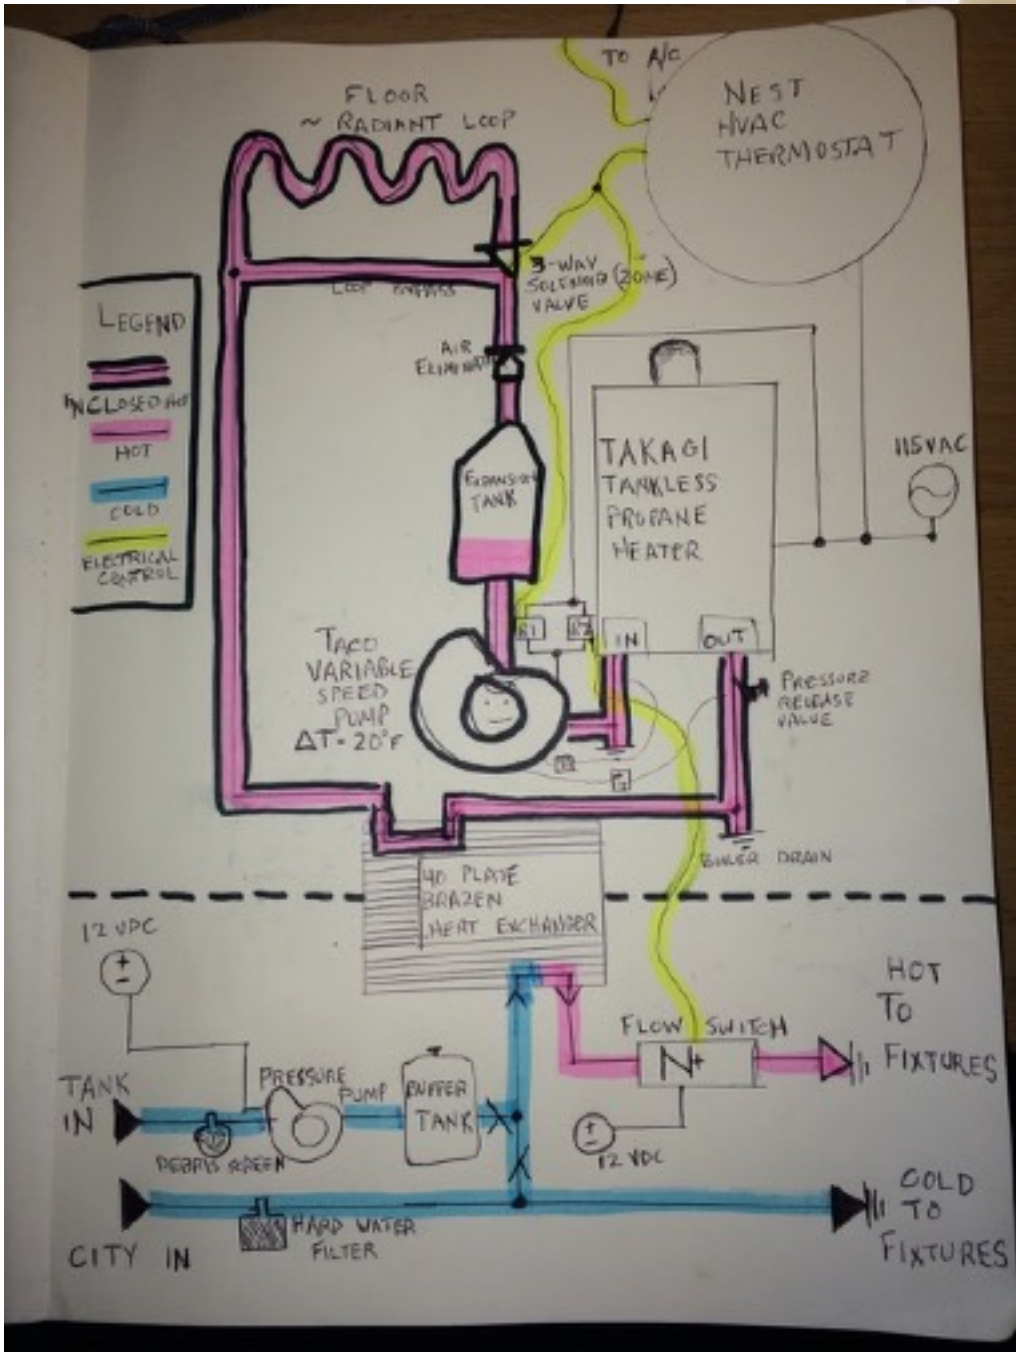 TO A/C
NEST
HVAC
THERMOSTAT
FLOOR
~ RADIANT LOOP
3-WAY
SOLENOID (ZONE)
VALVE
LOOP BYPASS
LEGEND
HOT
COLD
ELECTRICAL
CONTROL
AIR
EXPANSION
TANK
TAKAGI
TANKLESS
PROPANE
HEATER
115VAC
R1
R2
IN
OUT
TACO
VARIABLE
SPEED
PUMP
ΔT-20°F
PRESSURE
RELEASE
VALVE
BOILER DRAIN
40 PLATE
BRAZEN
HEAT EXCHANGER
12 VDC
HOT
TO
FIXTURES
FLOW SWITCH
N+
TANK
IN
PRESSURE
PUMP
BUFFER
TANK
DEBRIS SCREEN
12 VDC
COLD
TO
FIXTURES
HARD WATER
FILTER
CITY IN